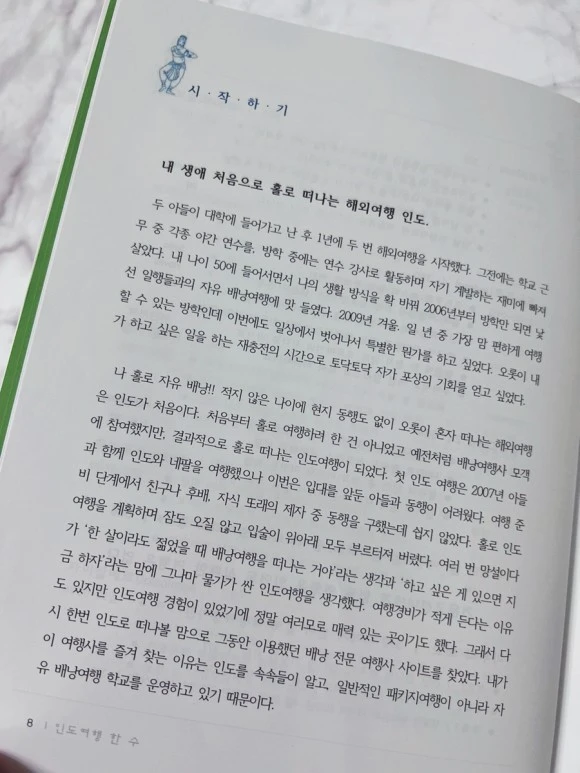 시·작·하·기
내 생애 처음으로 홀로 떠나는 해외여행 인도.
두 아들이 대학에 들어가고 난 후 1년에 두 번 해외여행을 시작했다. 그전에는 학교 근
무 중 각종 야간 연수를, 방학 중에는 연수 강사로 활동하며 자기 개발하는 재미에 빠져
살았다. 내 나이 50에 들어서면서 나의 생활 방식을 확 바꿔 2006년부터 방학만 되면 낯
선 일행들과의 자유 배낭여행에 맛 들였다. 2009년 겨울. 일 년 중 가장 맘 편하게 여행
할 수 있는 방학인데 이번에도 일상에서 벗어나서 특별한 뭔가를 하고 싶었다. 오롯이 내
가 하고 싶은 일을 하는 재충전의 시간으로 토닥토닥 자가 포상의 기회를 얻고 싶었다.
나 홀로 자유 배낭!! 적지 않은 나이에 현지 동행도 없이 오롯이 혼자 떠나는 해외여행
은 인도가 처음이다. 처음부터 홀로 여행하려 한 건 아니었고 예전처럼 배낭여행사 모객
에 참여했지만, 결과적으로 홀로 떠나는 인도여행이 되었다. 첫 인도 여행은 2007년 아들
과 함께 인도와 네팔을 여행했으나 이번은 입대를 앞둔 아들과 동행이 어려웠다. 여행 준
비 단계에서 친구나 후배, 자식 또래의 제자 중 동행을 구했는데 쉽지 않았다. 홀로 인도
여행을 계획하며 잠도 오질 않고 입술이 위아래 모두 부르터져 버렸다. 여러 번 망설이다
가 ‘한 살이라도 젊었을 때 배낭여행을 떠나는 거야’라는 생각과 ‘하고 싶은 게 있으면 지
금 하자’라는 맘에 그나마 물가가 싼 인도여행을 생각했다. 여행경비가 적게 든다는 이유
도 있지만 인도여행 경험이 있었기에 정말 여러모로 매력 있는 곳이기도 했다. 그래서 다
시 한번 인도로 떠나볼 맘으로 그동안 이용했던 배낭 전문 여행사 사이트를 찾았다. 내가
이 여행사를 즐겨 찾는 이유는 인도를 속속들이 알고, 일반적인 패키지여행이 아니라 자
유 배낭여행 학교를 운영하고 있기 때문이다.
8 | 인도여행 한 수